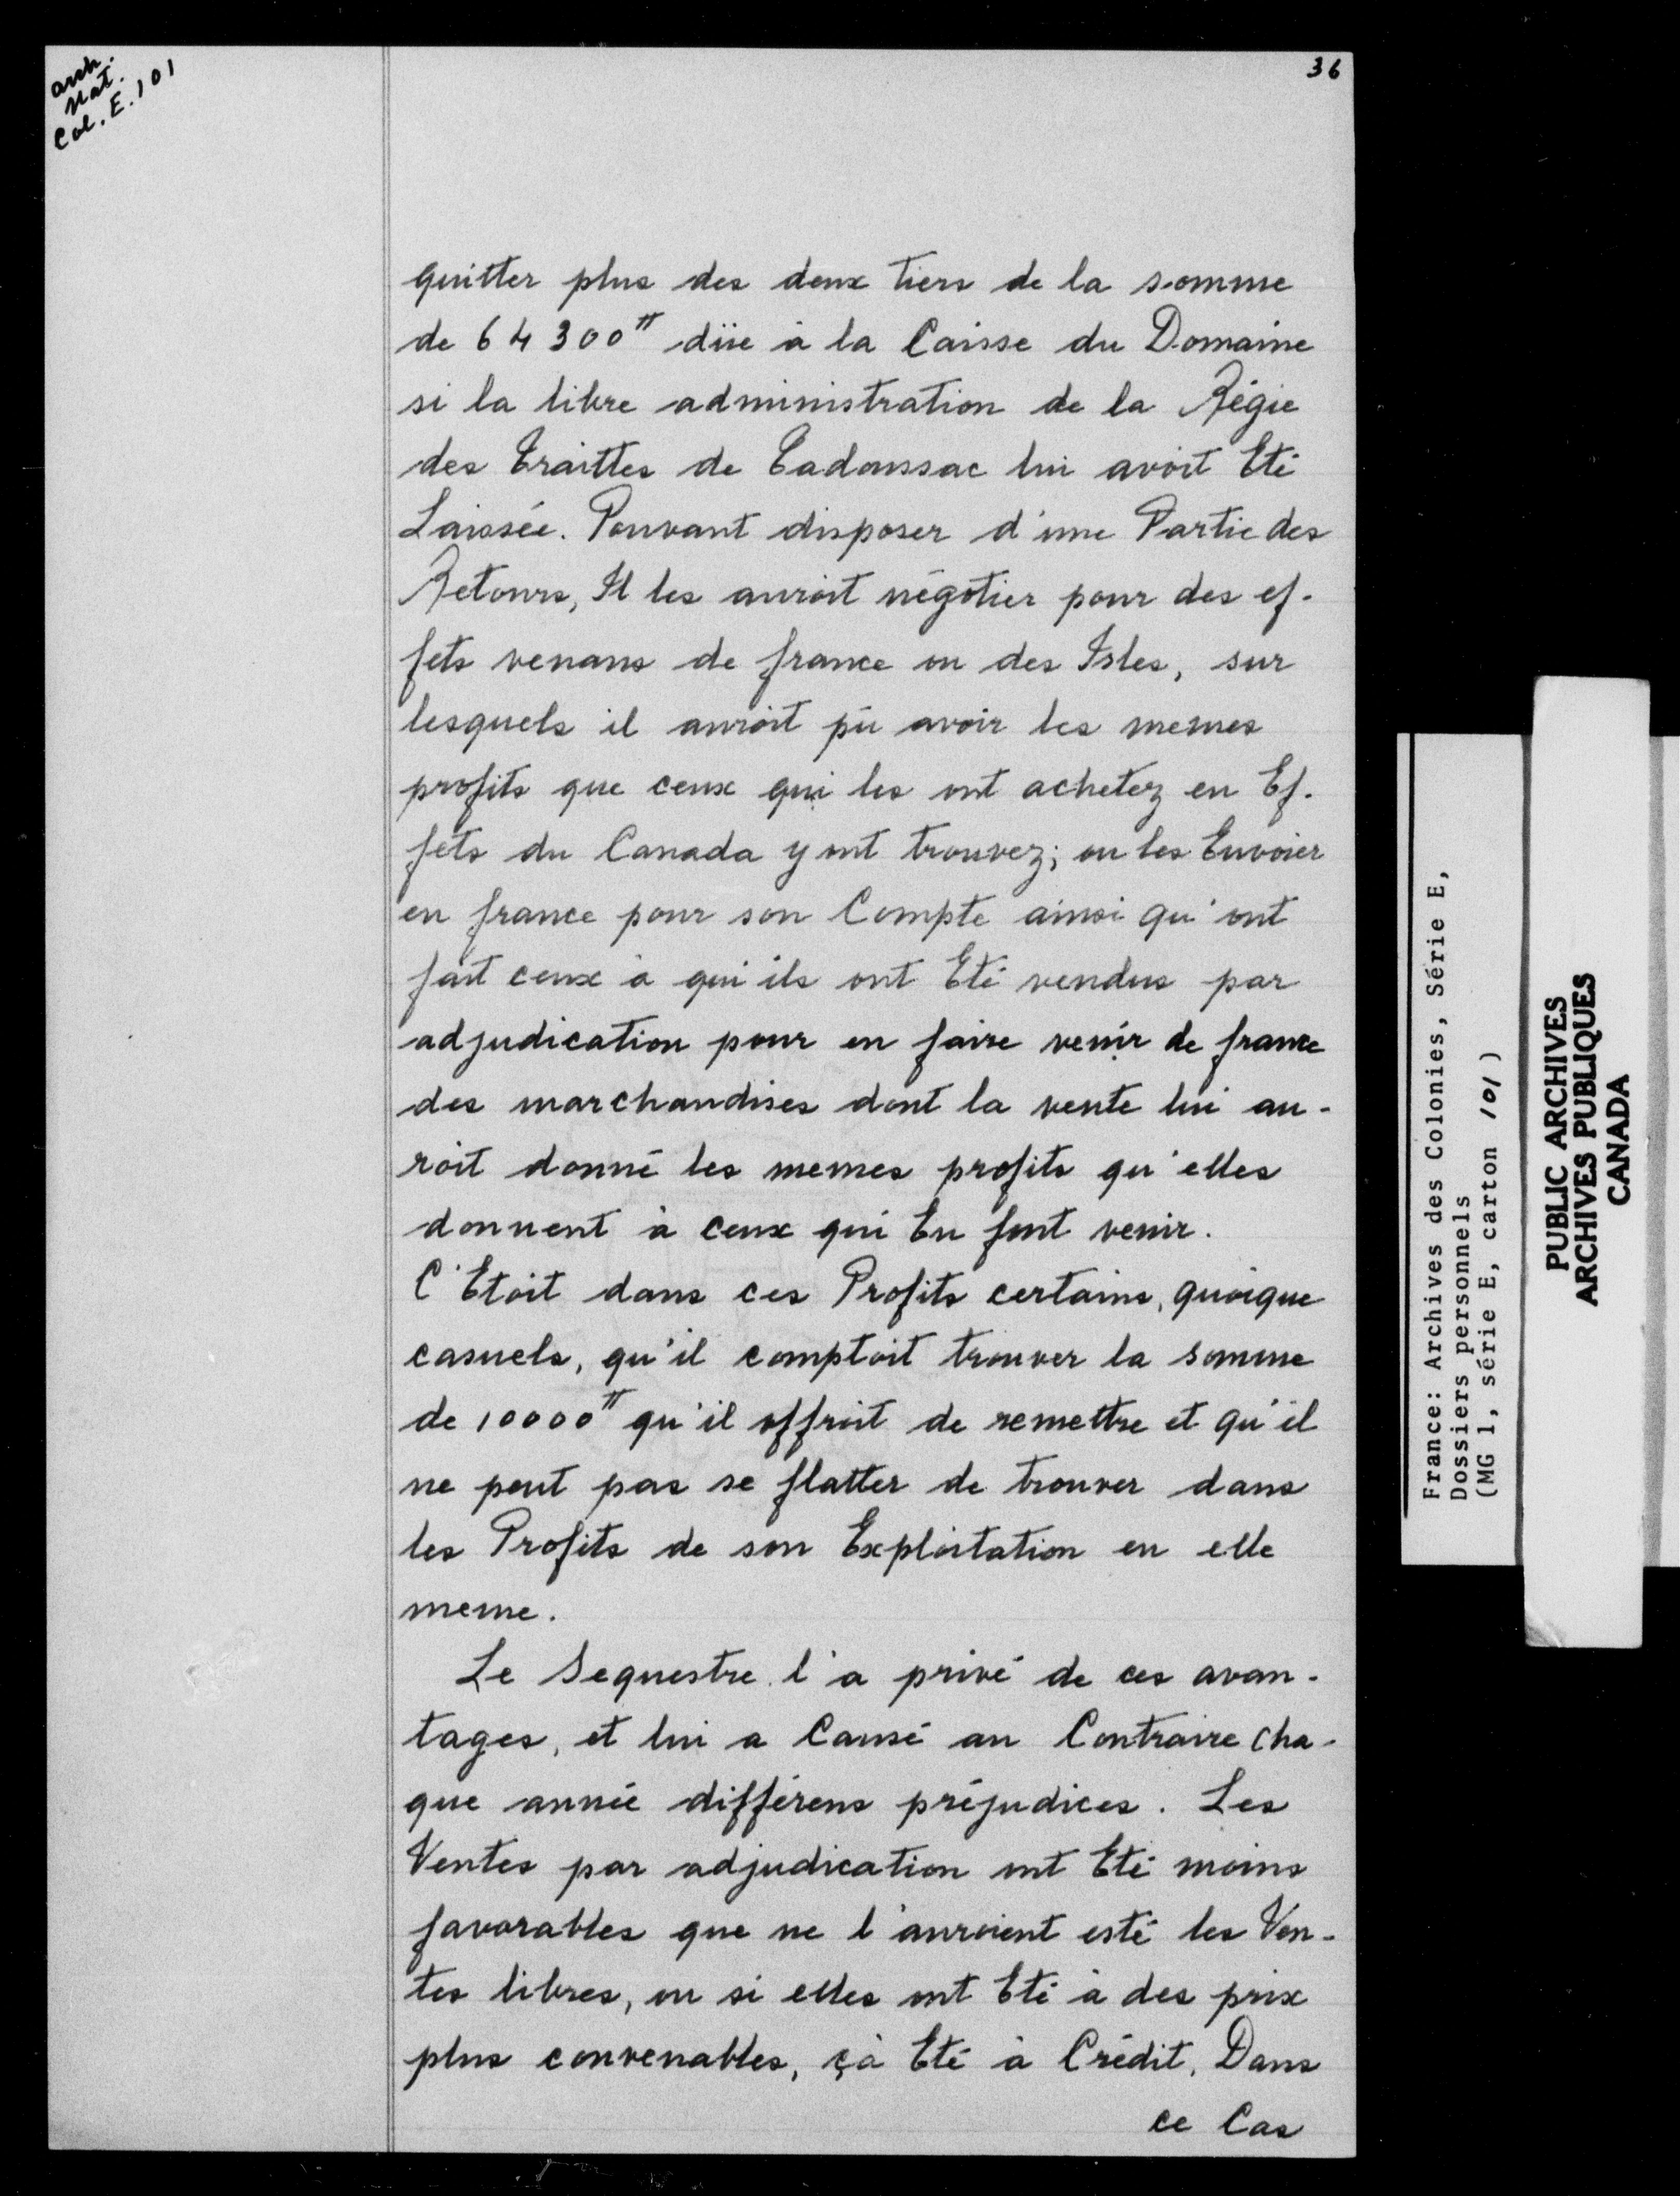 arch.
Nat.
Col. E. 101
36
quitter plus des deux tiers de la somme
de 64300tt düe à la Caisse du Domaine
si la libre administration de la Régie
des Traittes de Tadoussac lui avoit Eté
Laissée. Pouvant disposer d'une Partie des
Retours, Il les auroit négotier pour des ef-
fets venans de france ou des Isles, sur
lesquels il auroit pü avoir les memes
profits que ceux qui les ont achetez en Ef-
fets du Canada y ont trouvez; ou les Envoier
en france pour son Compte ainsi qu'ont
fait ceux à qui ils ont Eté vendus par
adjudication pour en faire venir de france
des marchandises dont la vente lui au-
roit donné les memes profits qu'elles
donnent à ceux qui En font venir.
C'Etoit dans ces Profits certains, quoique
casuels, qu'il comptoit trouver la somme
de 10000tt qu'il offroit de remettre et qu'il
ne peut pas se flatter de trouver dans
les Profits de son Exploitation en elle
meme.
Le Sequestre l'a privé de ces avan-
tages, et lui a Causé au Contraire cha-
que année différens préjudices. Les
Ventes par adjudication ont Eté moins
favorables que ne l'auroient esté les Ven-
tes libres, ou si elles ont Eté à des prix
plus convenables, çà Eté à Crédit, Dans
ce Cas
France: Archives des Colonies, Série E,
Dossiers personnels
(MG 1, série E, carton 101)
PUBLIC ARCHIVES
ARCHIVES PUBLIQUES
CANADA